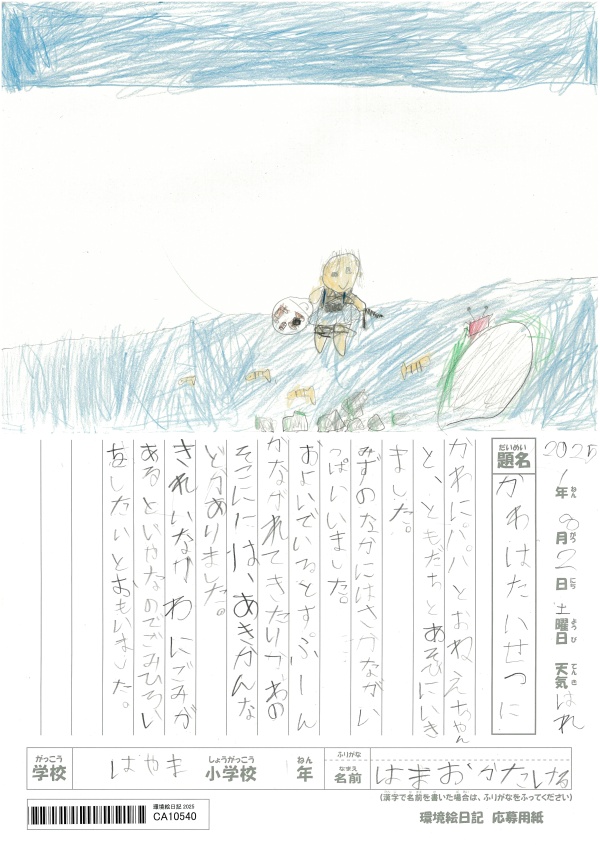 2025年8月2日土曜日 天気はれ
だいめい
題名 かわはたいせつに
かわにパパとおねえちゃん
と、ともだちとあそびにいき
ました。
みずのなかにはさかながい
っぱいいました。
およいでいるとすぷーん
がながれてきたりかわの
そこにには、あきかんな
どがありました。
きれいなかわにごみが
あるといやなのでごみひろい
をしたいとおもいました。
がっこう しょうがっこう ねん ふりがな なまえ
学校 はやま 小学校 年 名前 はまおかたける
(漢字で名前を書いた場合は、ふりがなをふってください)
環境絵日記 応募用紙
環境絵日記 2025
CA10540